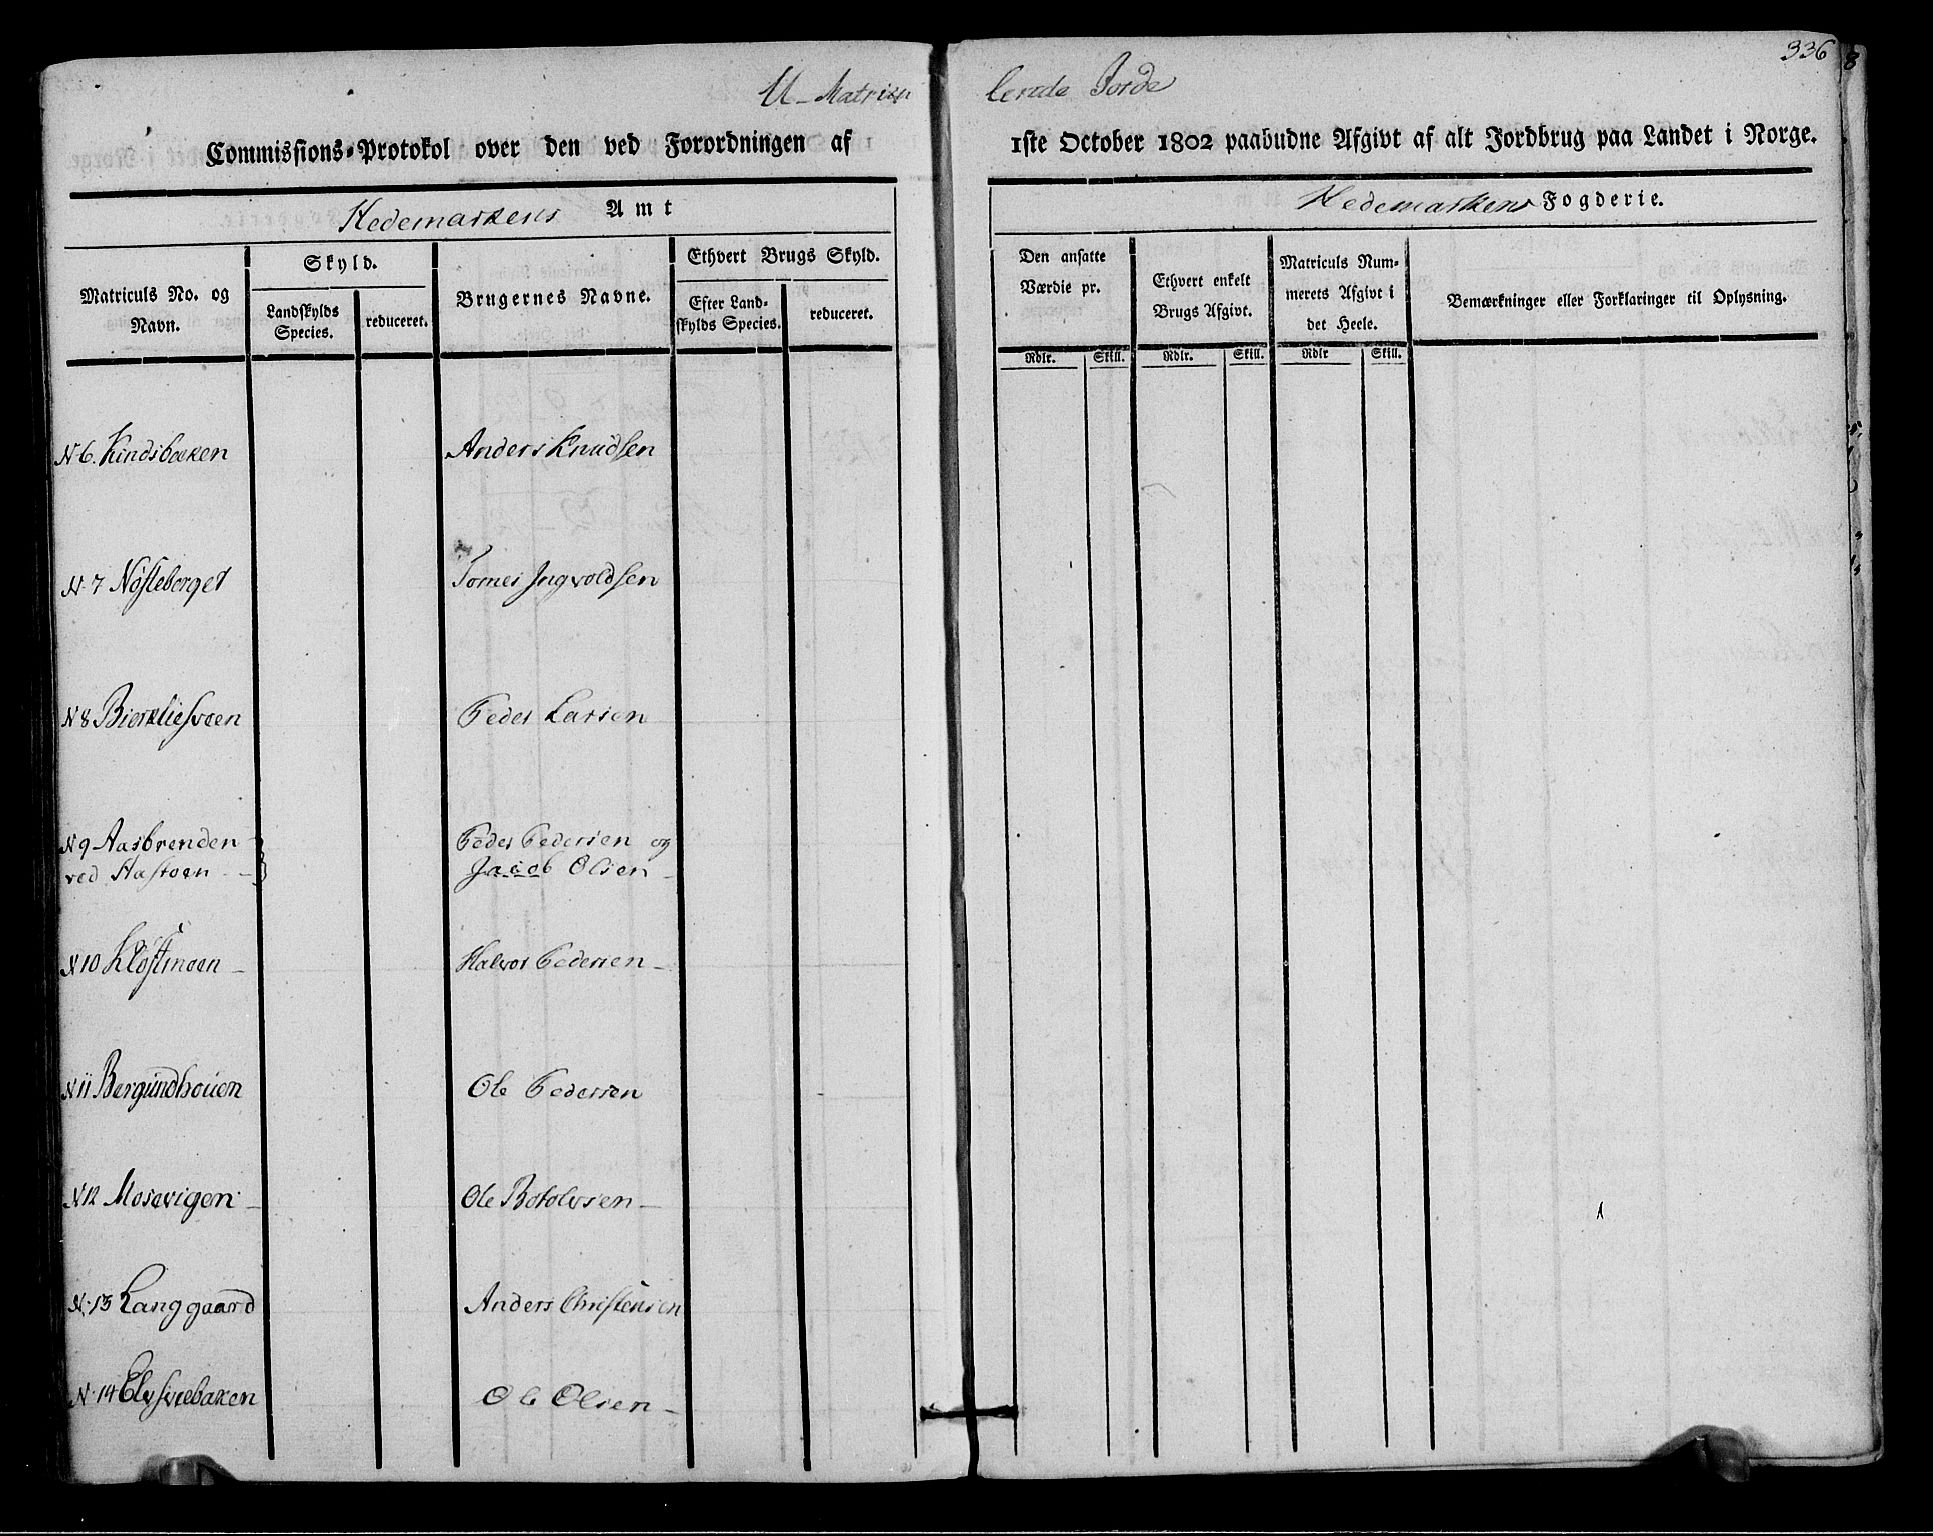 336
U-Matricu lerede Jorde
Commissions-Protokol over den ved Forordningen af 1ste October 1802 paabudne Afgivt af alt Jordbrug paa Landet i Norge.
Hedemarkens Amt
Hedemarkens Fogderie.
Matriculs No. og Navn.
Skyld.
Landskylds Species.
reduceret.
Brugernes Navne.
Ethvert Brugs Skyld.
Efter Landskylds Species.
reduceret.
Den ansatte Værdie pr.
Ethvert enkelt Brugs Afgivt.
Matriculs Nummerets Afgivt i det Heele.
Bemærkninger eller Forklaringer til Oplysning.
Rdlr. Skill. Rdlr. Skill. Rdlr Skill.
N 6. Kindsbaken Anders Knudsen
N 7 Nøsleberget Tomes Ingvoldsen
N 8 Bierkliesveen Peder Larsen
N 9 Aasbrenden Peder Pedersen og
ved Hastoen Jacob Olsen
N 10 Kløftmoen Halvor Pedersen
N 11 Bergundhouen Ole Pedersen
N 12 Mosevigen Ole Botolvsen
N. 13 Langgaard Anders Christensen
N. 14 Elvsviebaken Ole Olsen